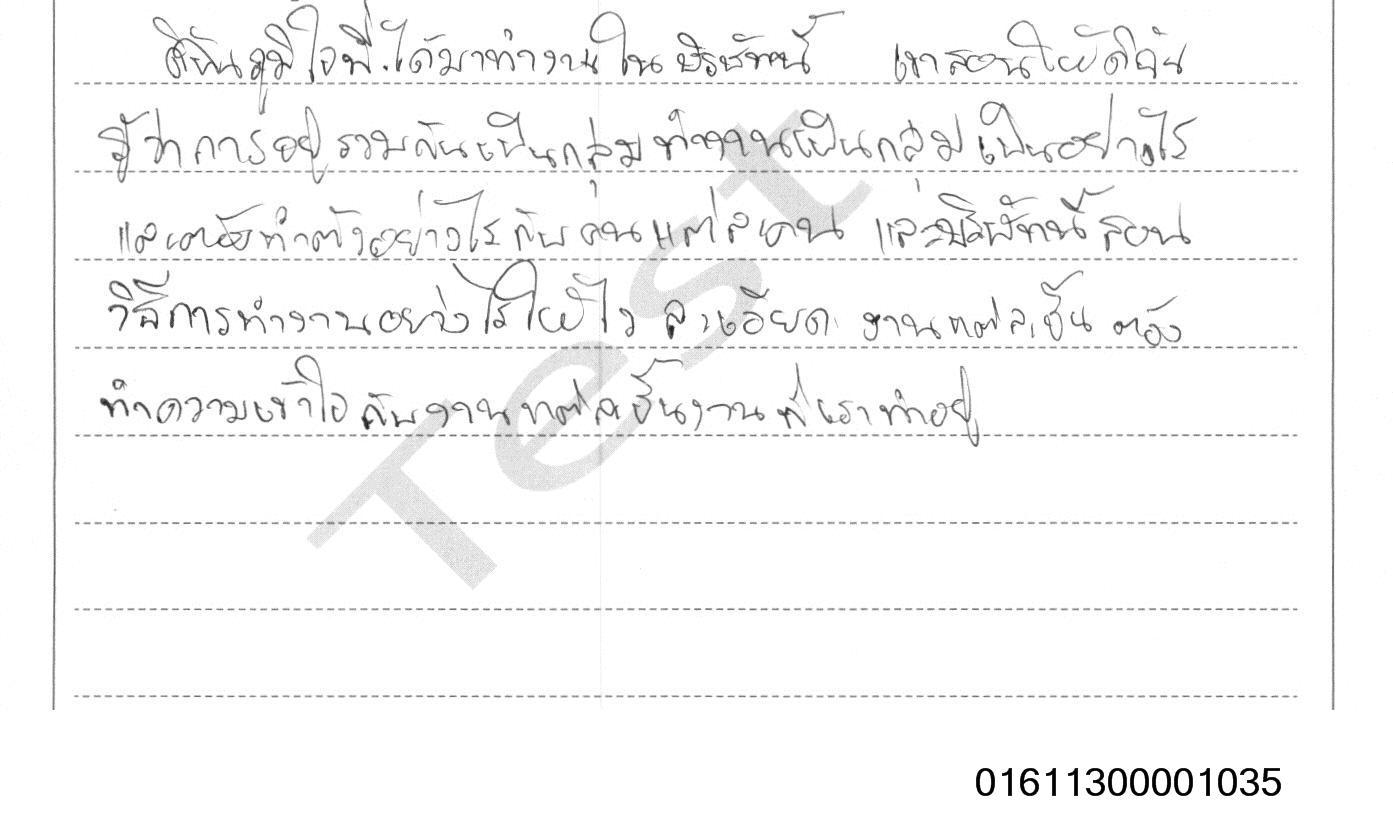 ดิฉันภูมิใจที่ได้มาทำงานในบริษัทนี้ เขาสอนให้ดิฉัน
รู้ว่าการอยู่รวมกันเป็นกลุ่มทำงานเป็นกลุ่มเป็นอย่างไร
และต้องทำตัวอย่างไรกับคนแต่ละคน และบริษัทนี้สอน
วิธีการทำงานอย่างไรให้ไว ละเอียด งานแต่ละชิ้น ต้อง
ทำความเข้าใจกับงานแต่ละชิ้นงานที่เราทำอยู่
Test
01611300001035